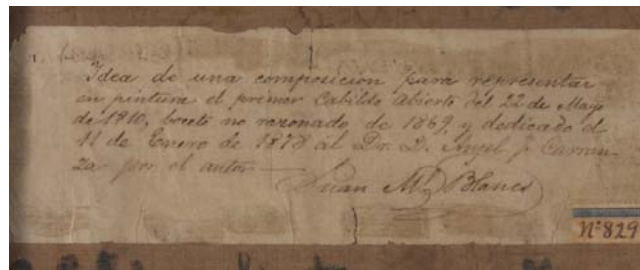 Idea de una composicion para representar
en pintura el primer Cabildo abierto del 22 de Mayo
de 1810, boceto no razonado de 1869, y dedicado el
11 de Enero de 1878 al Dr. D. Angel J. Carran
za por el autor
Juan M. Blanes
Nº 829